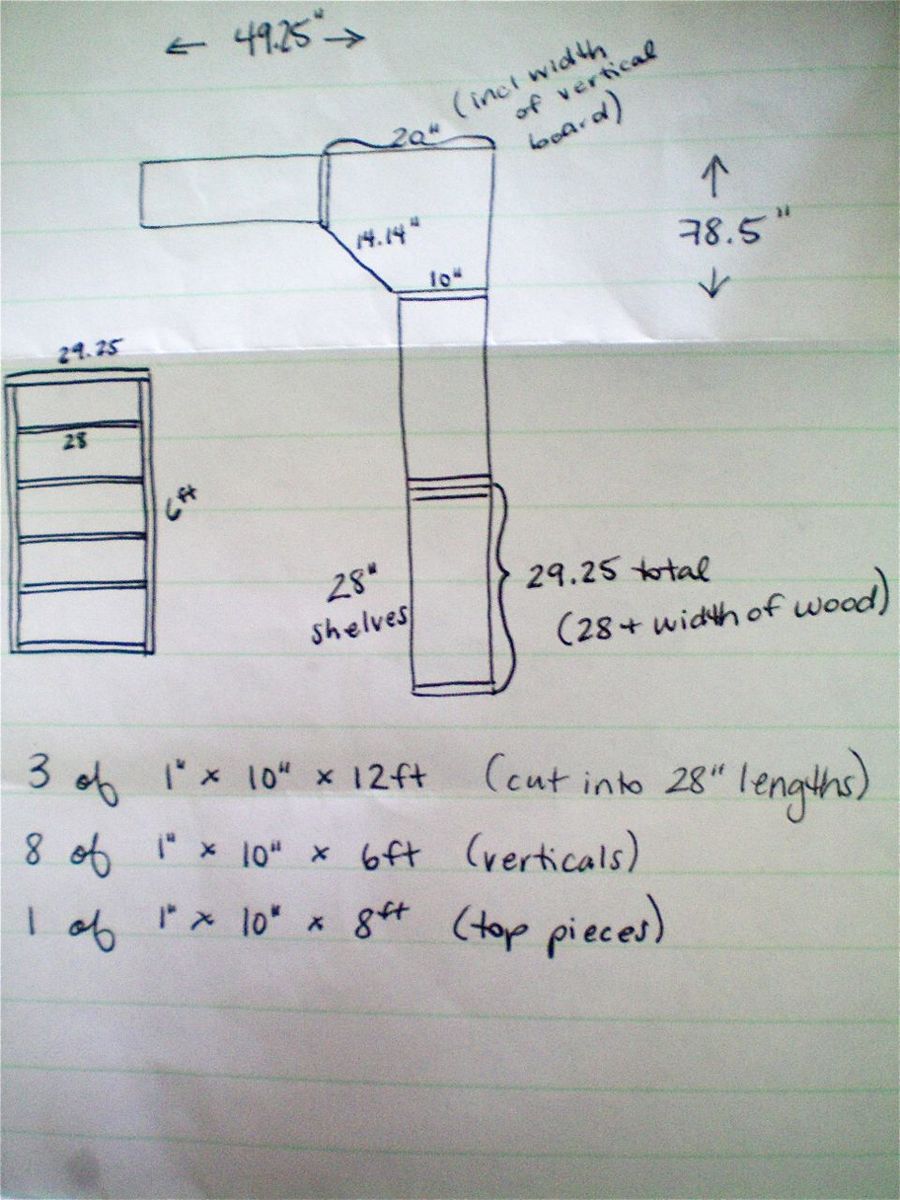 ← 49.25" →
(incl width
of vertical
board)
20"
14.14"
10"
↑
78.5"
↓
29.25
28
6ft
28"
shelves
29.25 total
(28 + width of wood)
3 of 1" x 10" x 12ft (cut into 28" lengths)
8 of 1" x 10" x 6ft (verticals)
1 of 1" x 10" x 8ft (top pieces)